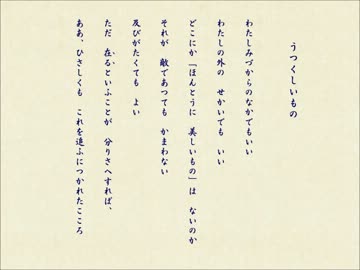 うつくしいもの
わたしみづからのなかでもいい
わたしの外の せかいでも いい
どこにか「ほんとうに 美しいもの」は ないのか
それが 敵であつても かまわない
及びがたくても よい
ただ 在るといふことが 分りさへすれば、
ああ、ひさしくも これを追ふにつかれたこころ